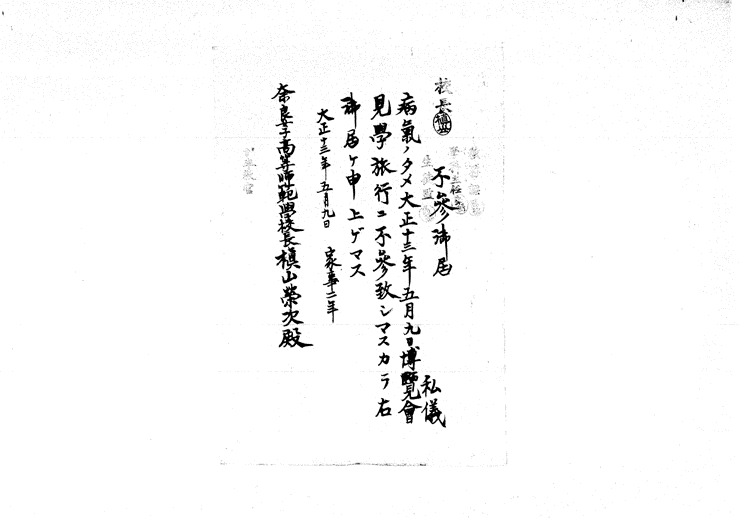 校長
不參御届
私儀
病氣ノタメ大正十三年五月九日博覽會
見學旅行ニ不參致シマスカラ右
御届ケ申上ゲマス
大正十三年五月九日
家事二年
奈良女子高等師範學校長槇山榮次殿